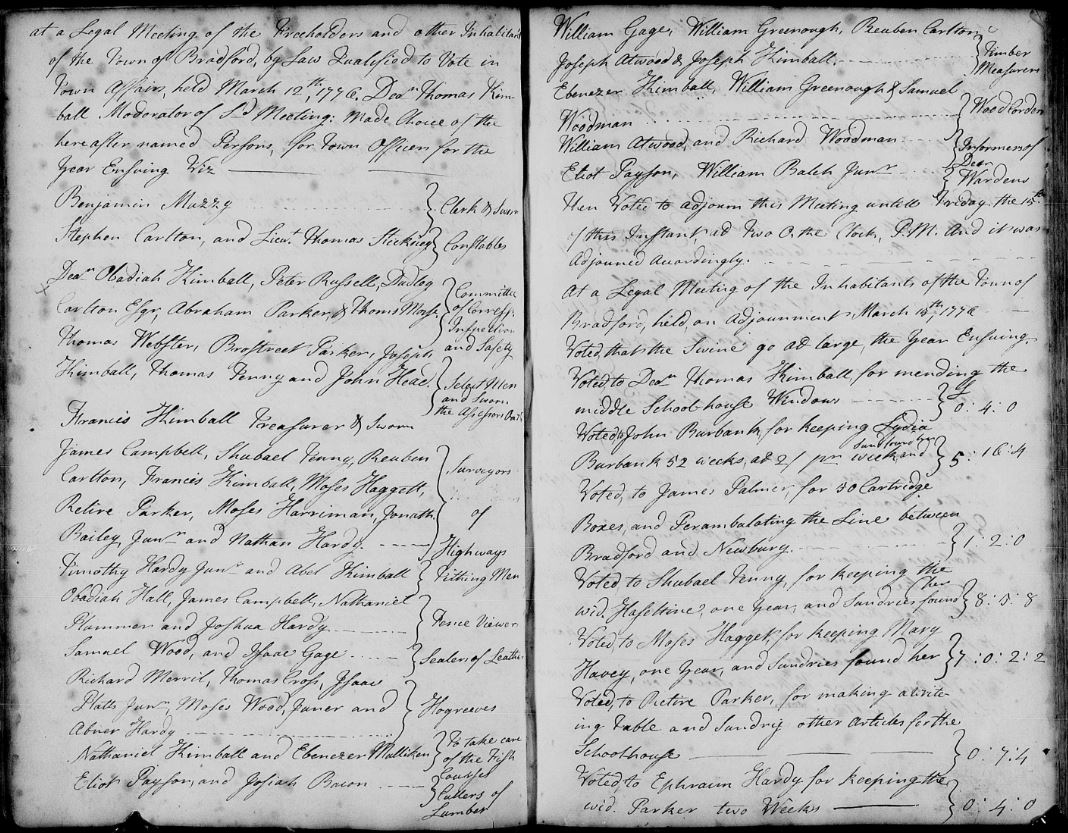 at a Legal Meeting of the Freeholders and other Inhabitants
of the Town of Bradford, by Law Qualified to Vote in
Town Affairs, held March 12th, 1776. Dean Thomas Kim-
ball, Moderator of Sd Meeting: Made Choice of the
hereafter named Persons, for Town Officers for the
Year Ensuing Viz
Benjamin Muzzy } Clark & Sworn
Stephen Carlton, and Lieut Thomas Stickney } Constables
Dean Obadiah Kimball, Peter Russell, Dudley
Carlton Esqr, Abraham Parker, & Thoms Morse } Committee of Corresp. Inspection and Safety
Thomas Webster, Brostreet Parker, Joseph
Kimball, Thomas Tenny and John Head. } Select Men and Sworn, the Assessors Oath
Francis Kimball Treasurer & Sworn
James Campbell, Shubael Tenny, Reuben
Carlton, Francis Kimball, Moses Haggett,
Retire Parker, Moses Harriman, Jonath
Bailey, Junr and Nathan Hardy } Surveyors of Highways
Timothy Hardy Junr and Abel Kimball } Tithing Men
Obadiah Hall, James Campbell, Nathaniel
Plummer and Joshua Hardy } Fence Viewers
Samuel Wood, and Isaac Gage } Sealers of Leather
Richard Merril, Thomas Cross, Isaac
Platts Junr, Moses Wood, Juner and
Abner Hardy } Hogreeves
Nathaniel Kimball and Ebenezer Mulliken } To take care of the Fish Courses
Eliot Payson, and Josiah Bacon } Cullers of Lumber
William Gage, William Greenough, Reuben Carlton
Joseph Atwood & Joseph Kimball } Timber Measurers
Ebenezer Kimball, William Greenough & Samuel
Woodman } Wood Corders
William Atwood, and Richard Woodman } Informers of Deer
Eliot Payson, William Balch Junr } Wardens
Then Voted to adjourn this Meeting untill Friday the 15th
of this Instant, at Two O, the Clock, P.M. And it was
Adjourned Accordingly.
At a Legal Meeting of the Inhabitants of the Town of
Bradford, held, on Adjournment, March 15th, 1776
Voted, that the Swine go at large, the Year Ensuing
Voted, to Dean Thomas Kimball, for mending the
middle School house Windows } £ 0 : 4 : 0
Voted, to John Burbank, for keeping Lydia
Burbank 52 weeks, at 2/ pr week and Sund found } 5 : 16 : 4
Voted, to James Palmer, for 30 Cartridge
Boxes, and Perambulating the Line between
Bradford and Newbury } 1 : 2 : 0
Voted to Shubael Tenny, for keeping the
wid. Haseltine, one year, and Sundries found her } 8 : 5 : 8
Voted, to Moses Haggett for keeping Mary
Havey, one Year, and Sundries found her } 7 : 0 : 2 : 2
Voted, to Retire Parker, for making a writ-
ing Table and Sundry other Articles for the
Schoolhouse } 0 : 7 : 4
Voted to Ephraim Hardy for keeping the
wid. Parker two Weeks } 0 : 4 : 0